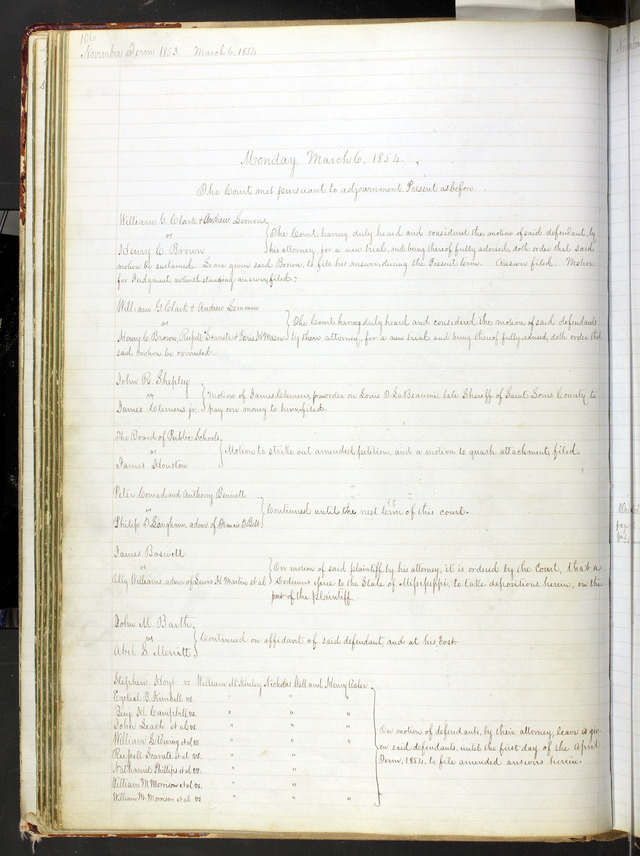 106
November Term 1853. March 6, 1854
Monday March 6, 1854.
The Court met pursuant to adjournment. Present as before.
William G. Clark & Andrew Lemons
vs
Henry C. Brown
The Court having duly heard and considered the motion of said defendant, by
his attorney, for a new trial, and being thereof fully advised, doth order that said
motion be sustained. Leave given said Brown, to file his answer during the Present term. Answer filed. Motion
for Judgment, notwithstanding answer filed.
William G. Clark & Andrew Lemmon
vs
Henry C. Brown, Russell Scarrett & Paris H. Mason
The Court having duly heard and considered the motion of said defendants
by their attorney, for a new trial, and being thereof fully advised, doth order that
said motion be overruled.
John R. Shepley
vs
James Clemens jr
Motion of James Clemens, for order on Louis D. LaBeaume, late Sheriff of Saint Louis County to
pay over money to him filed.
The Board of Public Schools
vs
James Houston
Motion to strike out amended petition, and a motion to quash attachment, filed.
Peter Conrad and Anthony Bennett
vs
Philip D. admr of Francis Bell
Continued until the next term of this court.
James Boswell
vs
Abby Williams, admr of Lewis H. Martin et al
On motion of said plaintiff by his attorney, it is ordered by the Court, that a
Dedimus issue to the State of Mississippi, to take depositions herein, on the
part of the plaintiff.
John M. Barth
vs
Abel S. Merritt
Continued on affidavit of said defendant, and at his Cost
Stephen Hoyt vs William McKinley Nicholas Wall and Henry
Ezekiel C. Kimball vs. " "
Benj. H. Campbell vs " " "
John Leach et al vs " " "
William G. Ewing et al vs " " "
Russell Scarrett et al vs. " "
Nathaniel Phillips et al vs. " "
William M. Morrison et al vs " "
William M. Morrison et al vs " " "
On motion of defendants, by their attorney, leave is giv-
en said defendants, until the first day of the April
Term, 1854, to file amended answers herein.